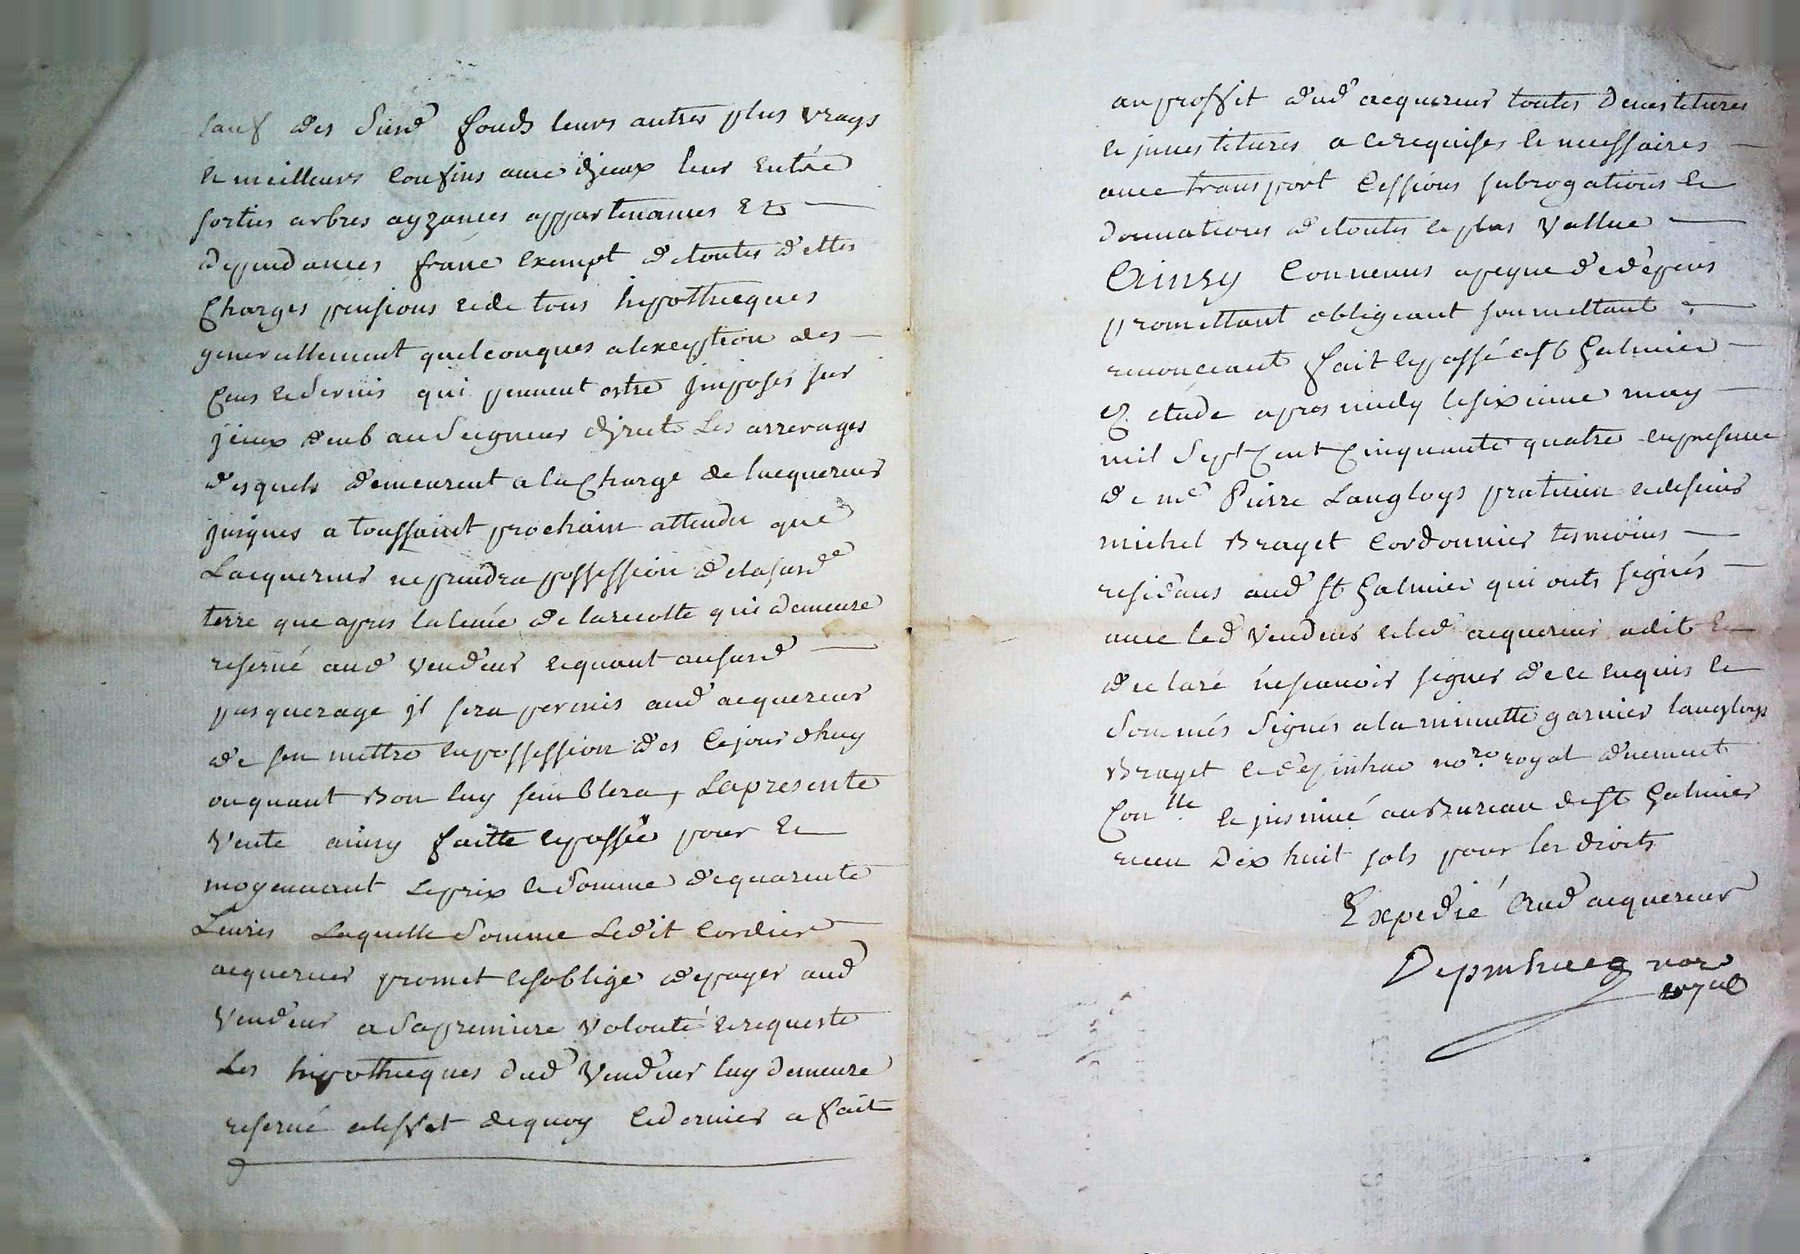 sauf des Susd fonds leurs autres plus vrays
et meilleurs confins avec iceux leur entrée
sorties arbres ayzances appartenances et
dependances franc exempt de toutes dettes
Charges pensions et de tous hipothecques
generallement quelconques a lexception des
Cens et Servis qui peuvent estre jmposés sur
jceux deub au Seigneur direct Les arrerages
desquels demeurent a la Charge de lacquereur
jusques a toussaint prochain attendu que
Lacquereur ne prendra possession de la susde
terre que apres la levée de la recolte qui demeure
reservé aud vendeur et quant au susd
pasquerage jl sera permis aud acquereur
de sen mettre en possession des ce jourdhuy
ou quant Bon luy semblera, La presente
Vente ainsy faitte et passée pour et
moyennant Le prix et Somme de quarente
Livres Laquelle Somme Ledit Cordier
acquereur promet et soblige de payer aud
Vendeur a Sa premiere Volonté et requeste
Les hipothecques dud Vendeur luy demeure
reservé a leffet de quoy ce dernier a fait
au proffit dud acquereur toutes devestitures
et jnvestitures a ce requises et necessaires
avec transport Cessions subrogations et
donnations de toutes et plus Vallue
Ainsy Convenus a peyne de depens
promettant obligeant soumettant
renonceant fait et passé a St Galmier
et etude apres midy le sixieme may
mil Sept Cent Cinquante quatre en presence
de me Pierre Langloys praticien et de sieur
michel Brayet Cordonnier tesmoins
residans aud St Galmier qui onts signés
avec led Vendeur et led acquereur a dit et
declaré ne scavoir signer de ce enquis et
Sommés Signés a la minutte garnier langloys
Brayet et depinhac nore royal duement
Conlle et jnsinué au Bureau de St Galmier
receu Dix huit sols pour les droits
Expedié Aud acquereur
nore
royal